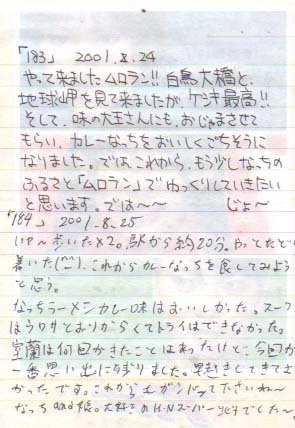 「183」 2001.8.24
やって来ましたムロラン!! 白鳥大橋と、
地球岬を見て来ましたが ケシキ最高!!
そして 味の大王さんにも、おじゃまさせて
もらい、カレーなっちをおいしくごちそうに
なりました。では、これから、もう少しなっちの
ふるさと「ムロラン」でゆっくりしていきたい
と思います。では〜〜 じょ〜
「184」 2001.8.25
いや〜歩いた×2。駅から約20分。やっとたどり
着いた(^^)。これからカレーなっちを食してみよう
と思う。
なっちラーメンカレー味はおいしかった。スープ
はウワサどおりからくてトライはできなかった。
室蘭は何回かきたことはあったけど、今回が
一番思い出に残りました。早起きしてきてよ
かったです。これからもガンバって下さいね〜
なっち and 娘。大好きのH.Nスーパー でした〜。